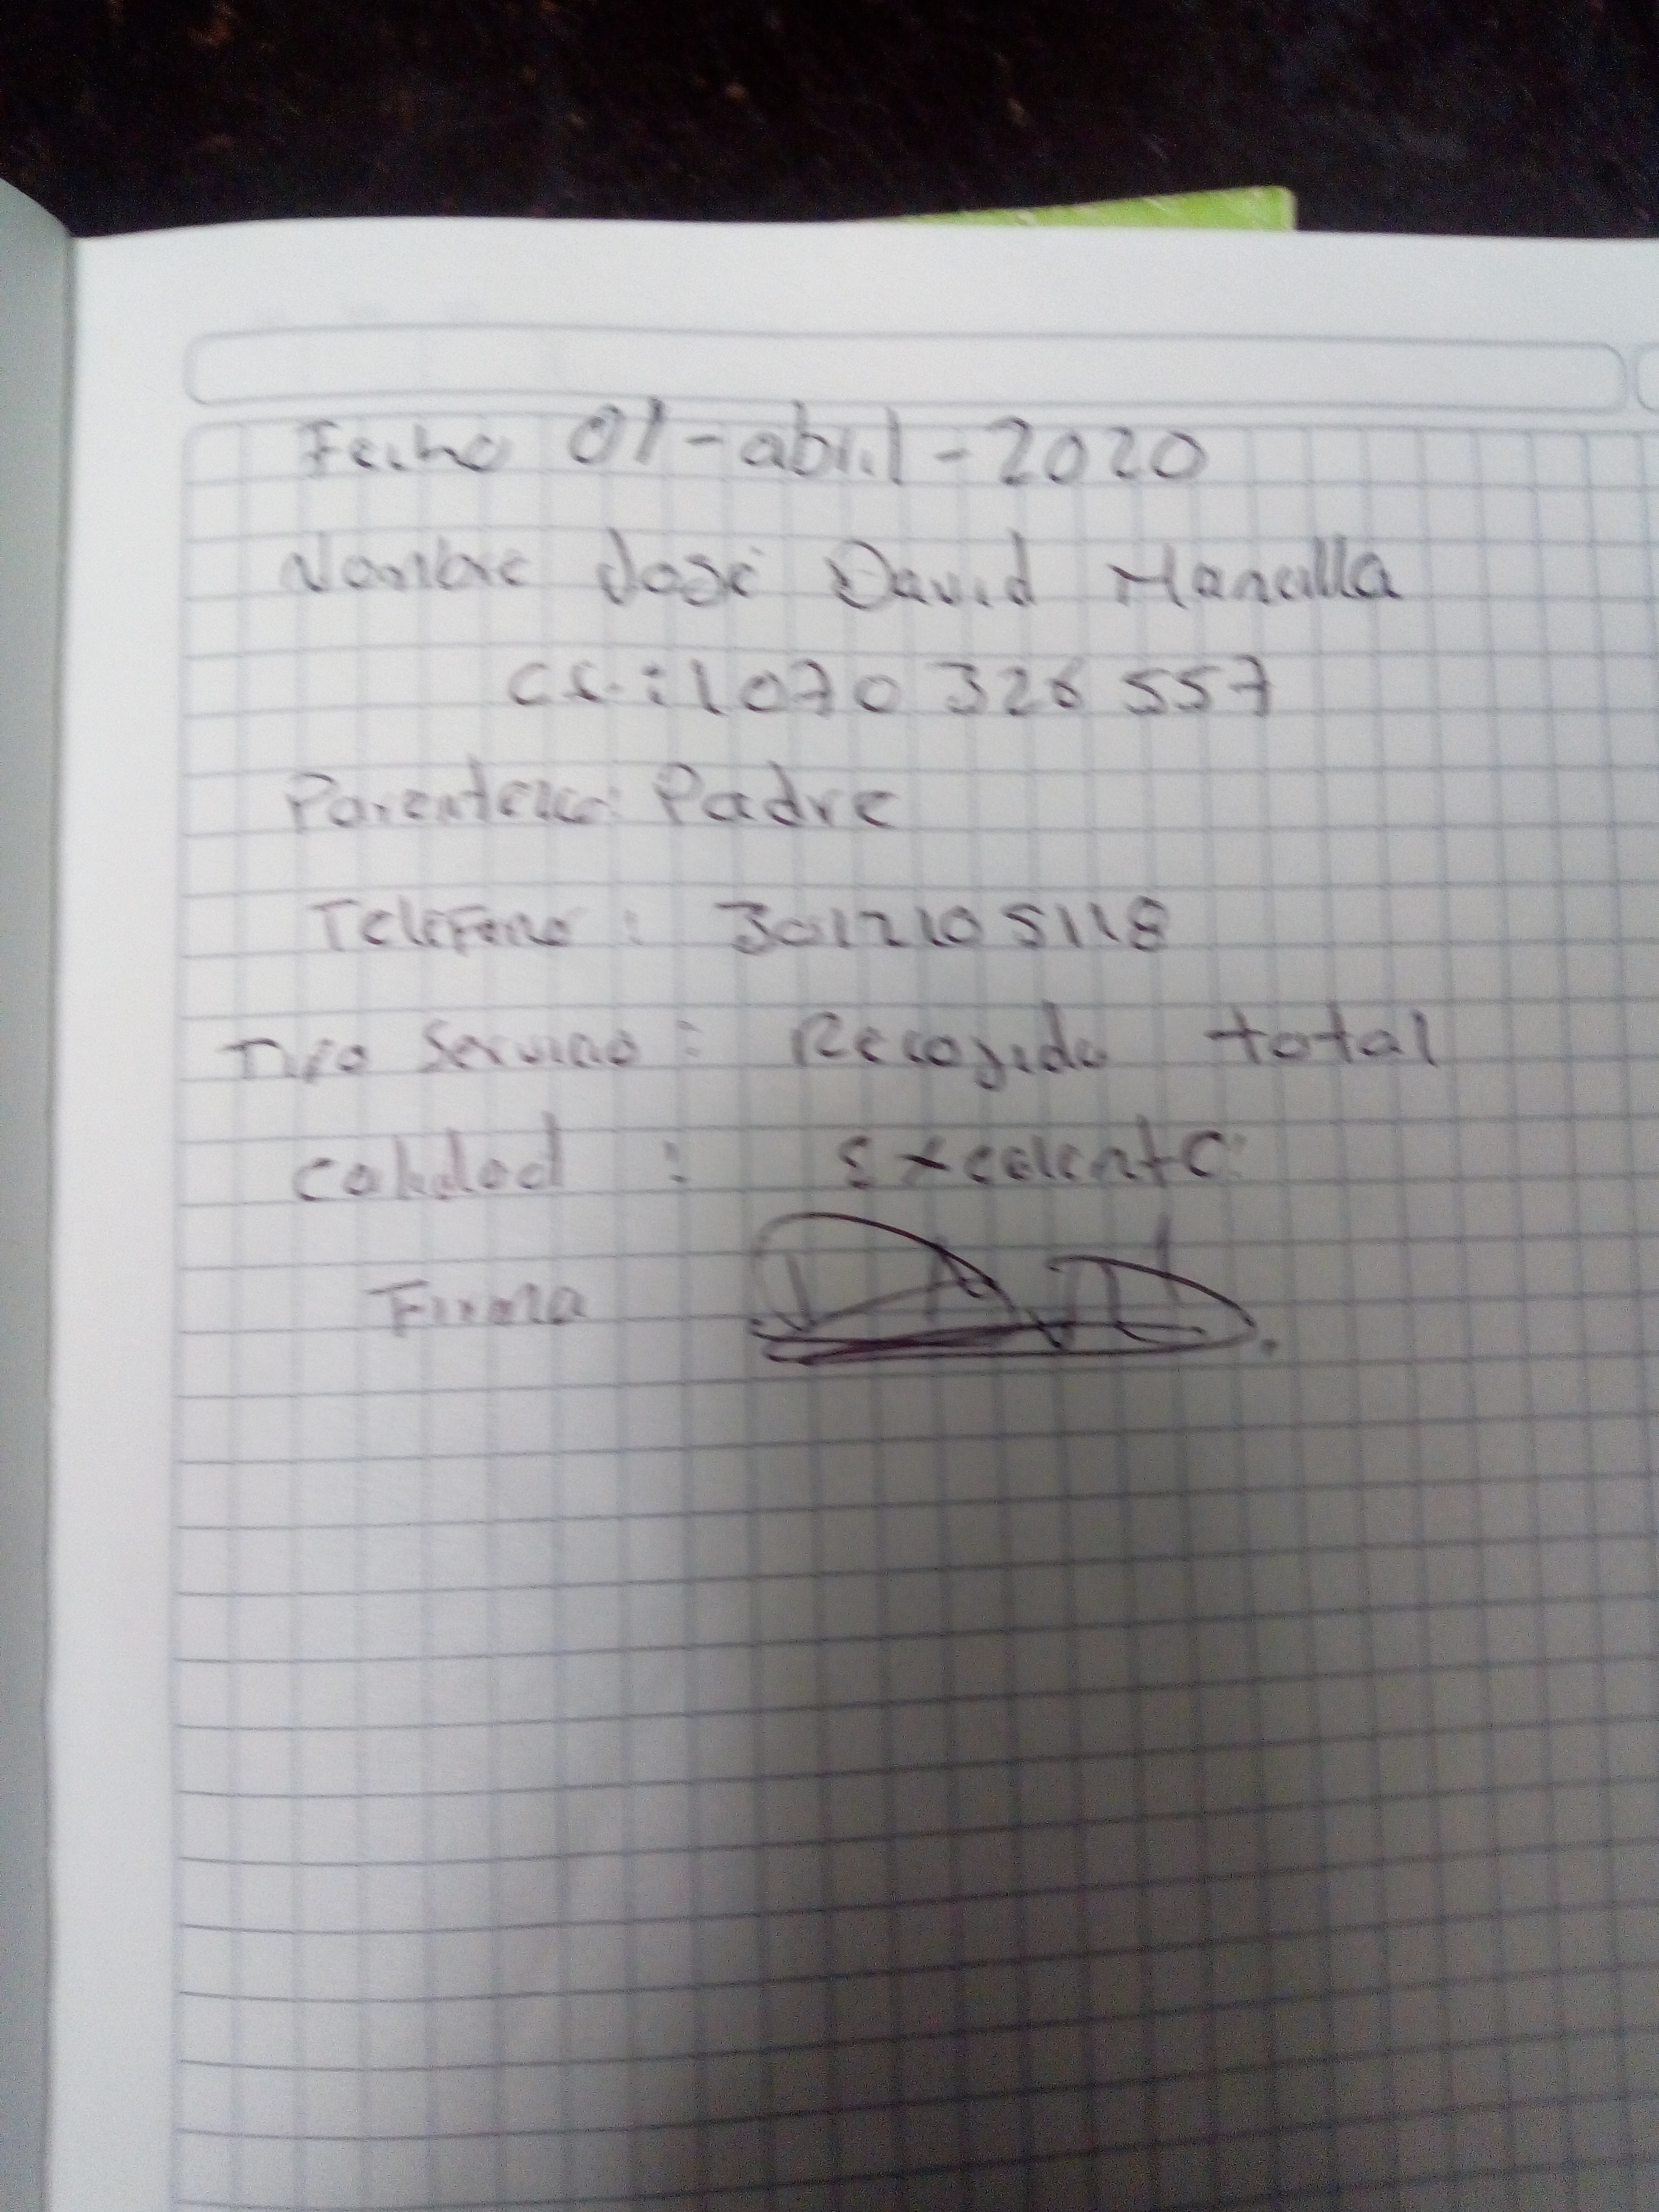 Fecha 01-abril-2020
Nombre José David Mancilla
CC.: 1070 326 557
Parentesco: Padre
Telefono : 3012105118
Tipo Servicio : Recojida total
Calidad : Excelente
Firma